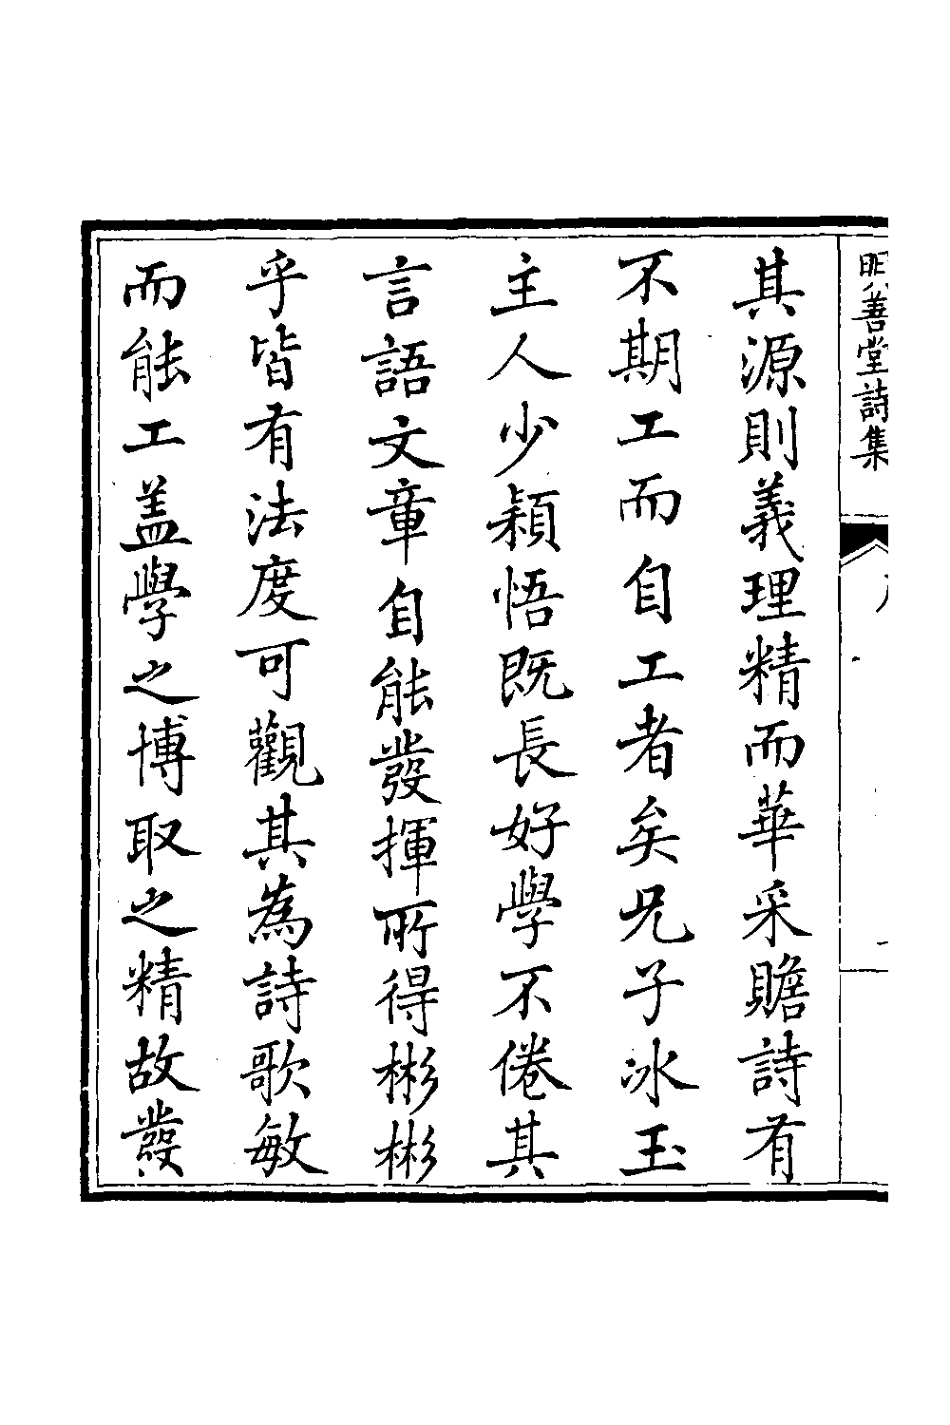 明善堂詩集
其源則義理精而華采贍詩有
不期工而自工者矣兄子冰玉
主人少穎悟既長好學不倦其
言語文章自能發揮所得彬彬
乎皆有法度可觀其為詩歌敏
而能工盖學之博取之精故發